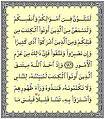 لَتُبْلَوُنَّ فِي أَمْوَالِكُمْ وَأَنفُسِكُمْ
وَلَتَسْمَعُنَّ مِنَ الَّذِينَ أُوتُوا الْكِتَابَ مِن
قَبْلِكُمْ وَمِنَ الَّذِينَ أَشْرَكُوا أَذًى كَثِيرًا
وَإِن تَصْبِرُوا وَتَتَّقُوا فَإِنَّ ذَٰلِكَ مِنْ عَزْمِ
الْأُمُورِ ١٨٦ وَإِذْ أَخَذَ اللَّهُ مِيثَاقَ
الَّذِينَ أُوتُوا الْكِتَابَ لَتُبَيِّنُنَّهُ لِلنَّاسِ
وَلَا تَكْتُمُونَهُ فَنَبَذُوهُ وَرَاءَ ظُهُورِهِمْ
وَاشْتَرَوْا بِهِ ثَمَنًا قَلِيلًا فَبِئْسَ مَا